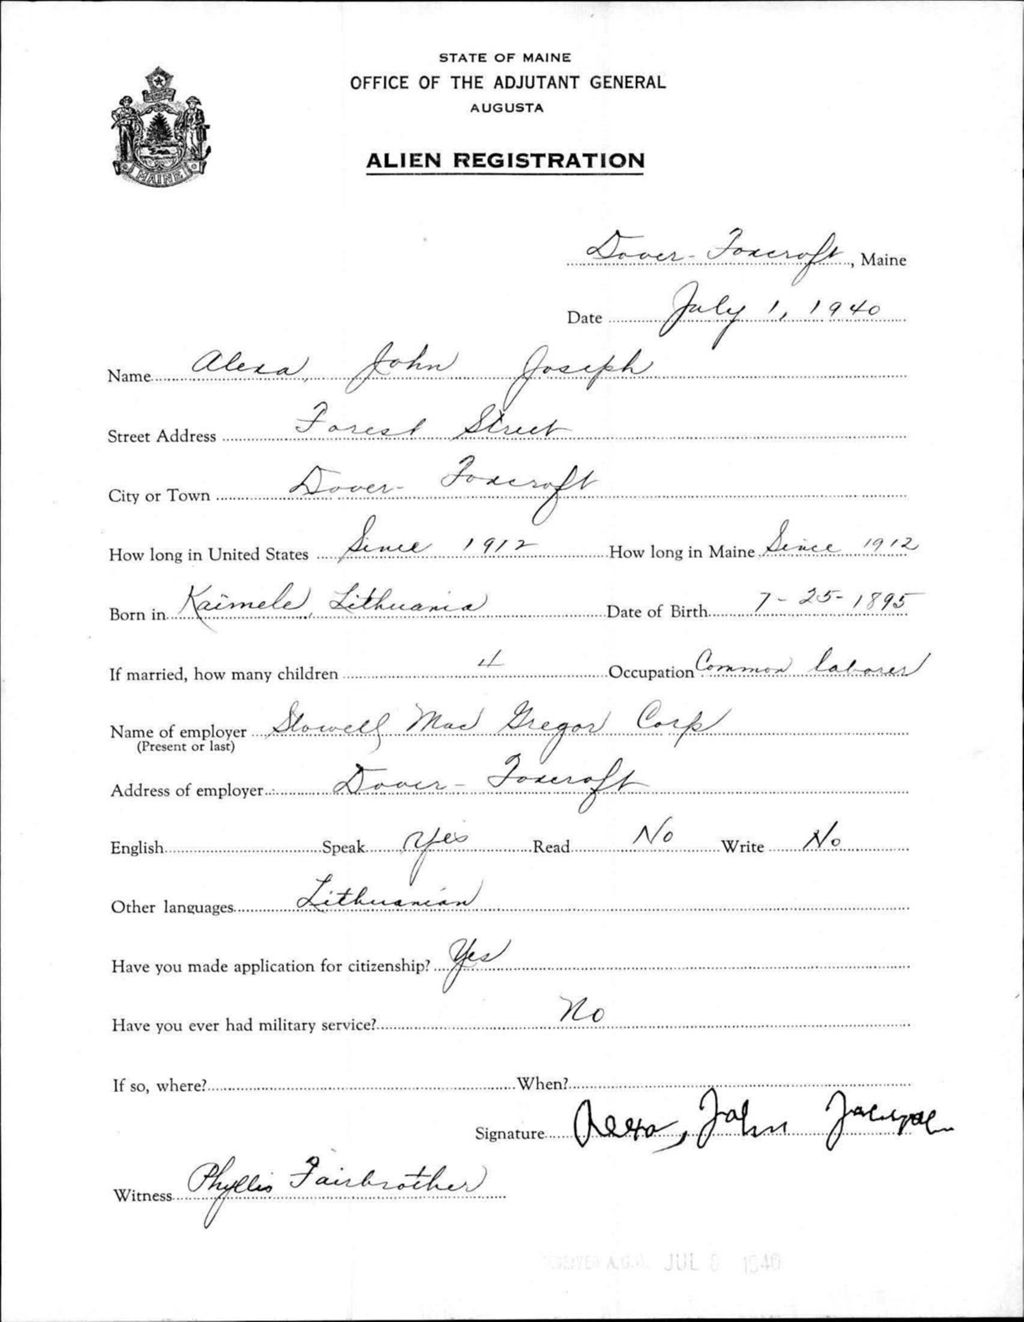 STATE OF MAINE
OFFICE OF THE ADJUTANT GENERAL
AUGUSTA
MAINE
ALIEN REGISTRATION
Dover-Foxcroft, Maine
Date July 1, 1940
Name Alexa, John Joseph
Street Address Forest Street
City or Town Dover-Foxcroft
How long in United States Since 1912 How long in Maine Since 1912
Born in Kaimele, Lithuania Date of Birth 7-25-1895
If married, how many children 4 Occupation Common laborer
Name of employer Stowell Mac Gregor Corp
(Present or last)
Address of employer Dover-Foxcroft
English Speak Yes Read No Write No
Other languages Lithuanian
Have you made application for citizenship? Yes
Have you ever had military service? No
If so, where? When?
Signature Alexa, John
Witness Phyllis Fairbrother
A.G.O. JUL 1940